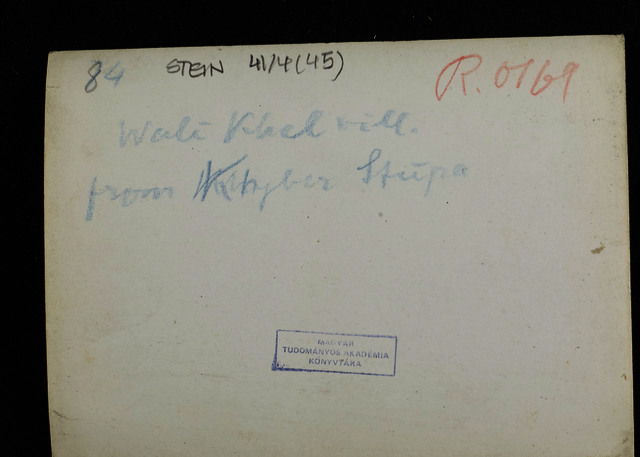 84 STEIN 41/4(45) R. 0169
Wali Khel vill.
from Khyber Stūpa
MAGYAR
TUDOMÁNYOS AKADÉMIA
KÖNYVTÁRA